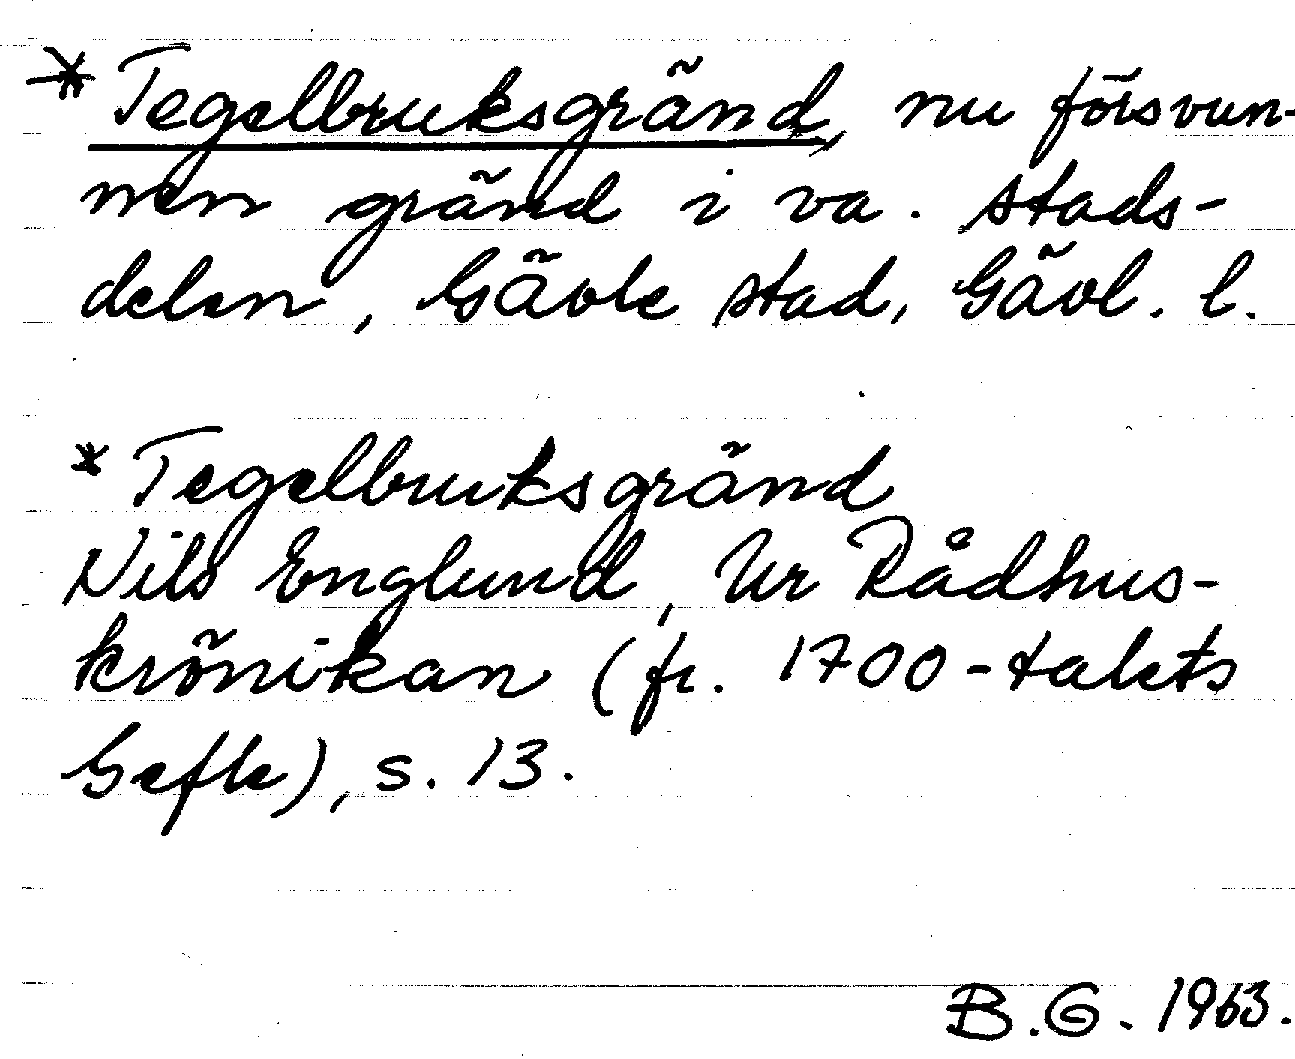 * Tegelbruksgränd, nu försvun-
nen gränd i va. stads-
delen, Gävle stad, Gävl. l.
* Tegelbruksgränd
Nils Englund, Ur Rådhus-
krönikan (fr. 1700-talets
Gefle), s. 13.
B.G. 1963.